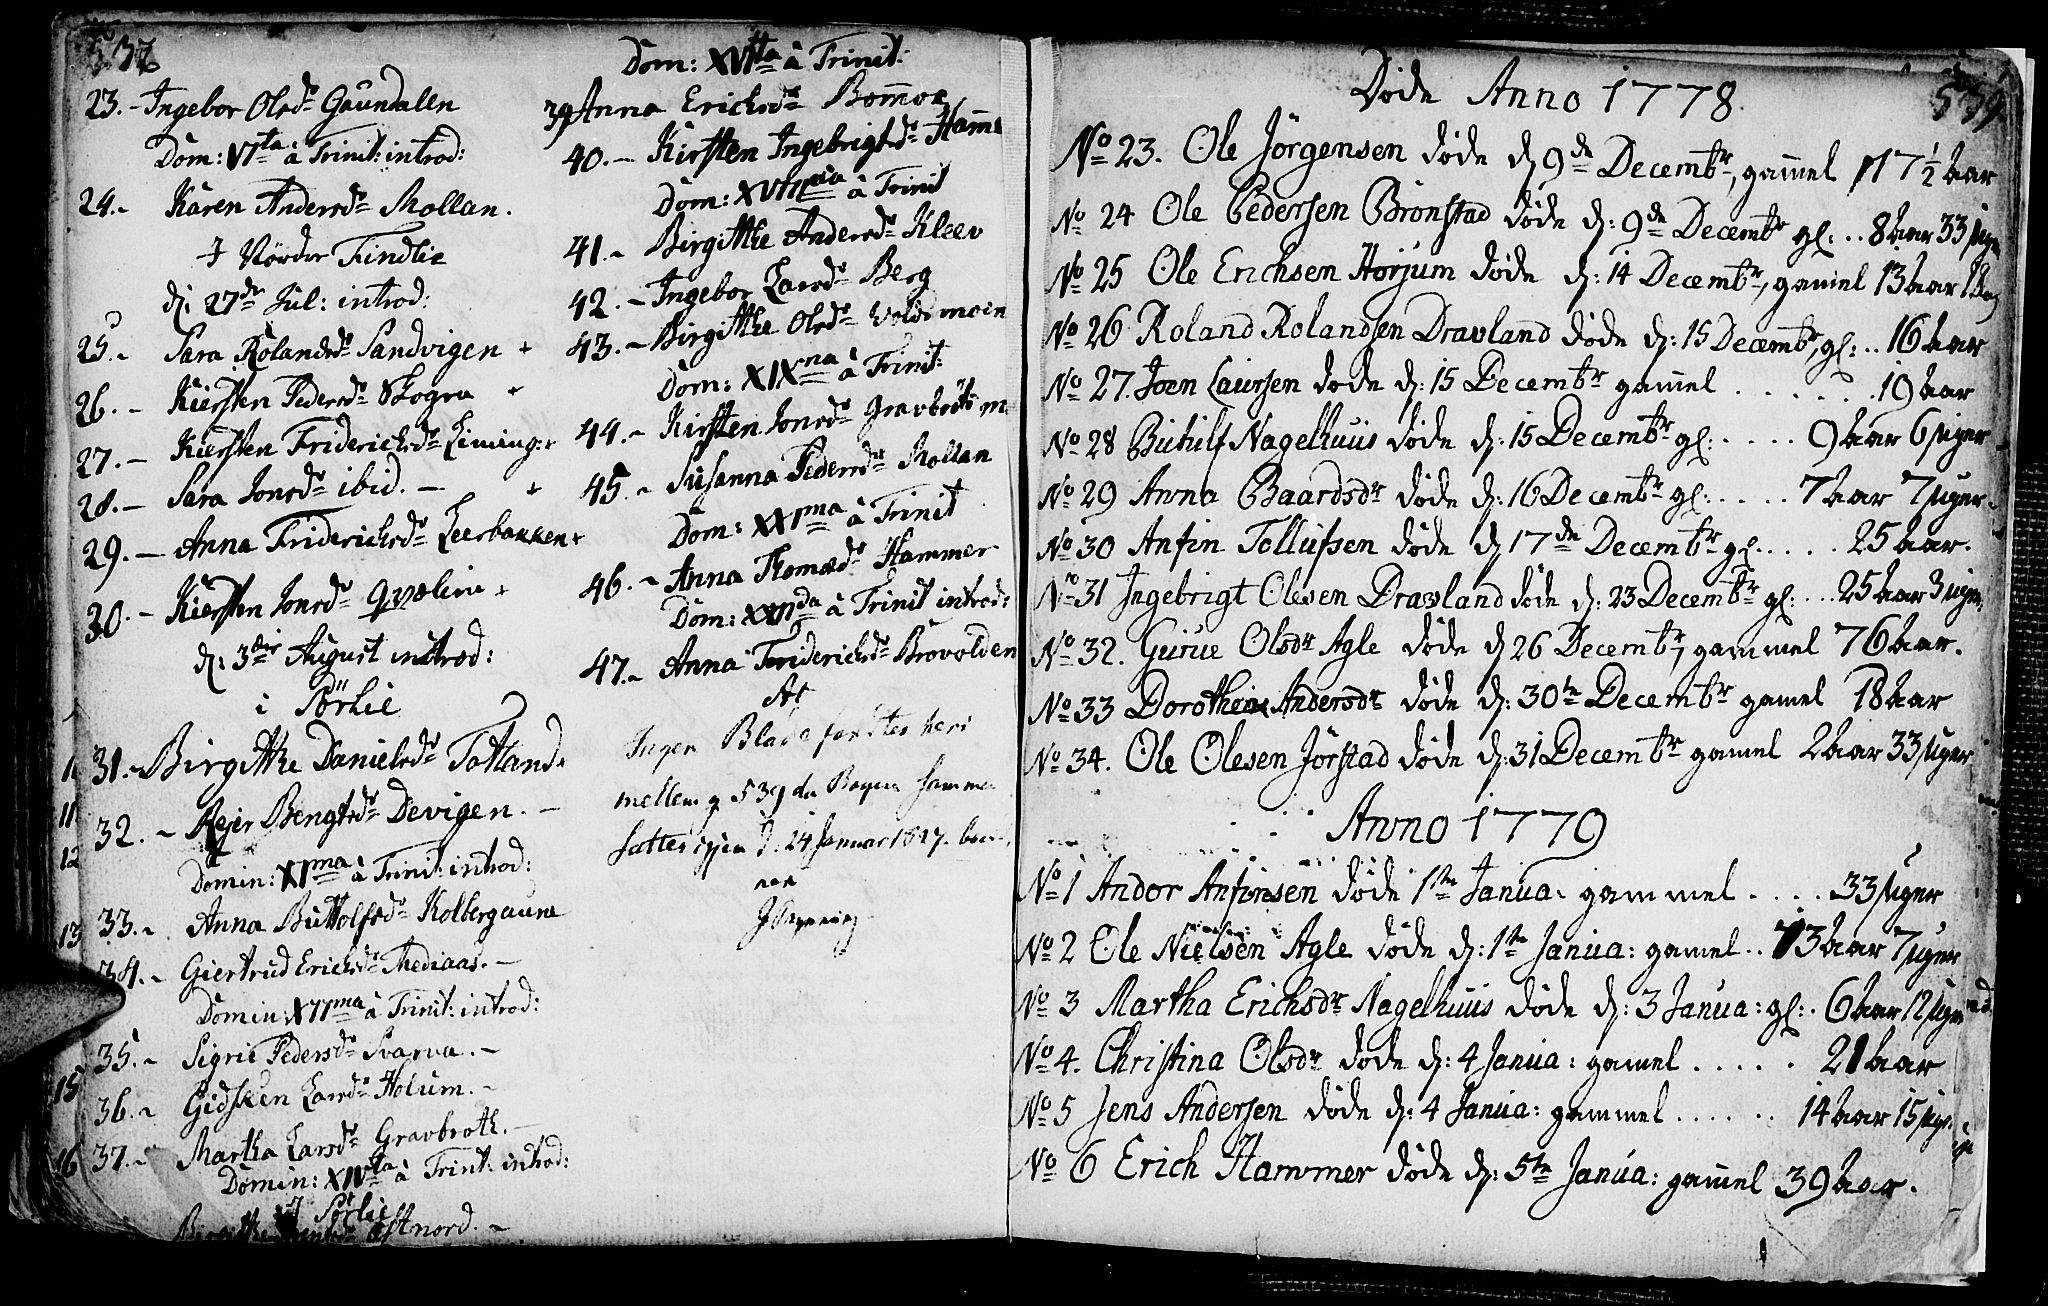 23.- Ingebor Olsdr Gaundalen
Dom: VIta à Trinit: introd:
24.- Karen Andersdr Mollan.
I Nordre Findlie
d: 27de Jul: introd:
25.- Sara Rolandsdr Sandvigen +
26.- Kiersten Pedersdr Skogra +
27.- Kiersten Friderichsdr Liming: +
28.- Sara Jonsdr ibid. - +
29.- Anna Friderichsdr Leerbakken +
30.- Kiersten Jonsdr Qvelie +
d: 3die August introd:
i Sörlie
31.- Birgitthe Danielsdr Totland.
32.- Rejer Bengtsdr Devigen. -
Domin: XIma à Trinit: introd:
33.- Anna Buttolfsdr Kolbergaune
34.- Giertrud Erichsdr Mediaas. -
Domin: XIIma à Trinit: introd:
35.- Sigrie Pedersdr Svarva. -
36.- Gidsken Larsdr Holum. -
37.- Martha Larsdr Gravbroth. -
Domin: XIVta à Trinit: introd:
I Sörlie
Birgitthe Østnord. -
Dom: XVIta à Trinit:
39 Anna Erichsdr Bom̄oe
40.- Kirsten Ingebrigtsdr Ham̄e
Dom: XVIIma à Trinit
41.- Birgitthe Andersdr Kleev
42.- Ingebor Larsdr Berg
43.- Birgitthe Olsdr Voldsmoen
Dom: XIXna à Trinit:
44.- Kirsten Jonsdr Gravbroth
45.- Susanna Pedersdr Mollan
Dom: XXIma à Trinit
46.- Anna Thomædr Hammer
Dom: XXIIda à Trinit introd:
47.- Anna Friderichsdr Brovolden
At
Ingen Blade fandtes heri
mellem p 539 da Bogen sammen
sattes igien d. 24 Januar 1827.
Døde Anno 1778.
539
No 23. Ole Jörgensen døde d 9de Decembr, gam̄el 17½ aar
No 24 Ole Pedersen Brönstad døde d: 9de Decembr gl: .. 8 aar 33 uger
No 25 Ole Erichsen Horjum døde d: 14 Decembr, gam̄el 13 aar 1 Dag
No 26 Roland Rolandsen Dravland døde d: 15 Decembr, gl: .. 16 aar
No 27. Joen Laursen døde d: 15 Decembr gam̄el ...... 19 aar
No 28 Butulf Nagelhuus døde d: 15 Decembr gl: .... 9 aar 6 uger
No 29 Anna Baardsdr døde d: 16 Decembr gl: .... 7 aar 7 uger.
No 30 Anfin Tollufsen døde d 17de Decembr gl .... 25 aar.
No 31 Ingebrigt Olesen Dravland døde d: 23 Decembr gl: ... 25 aar 3 uger
No 32. Gurue Olsdr Agle døde d 26 Decembr, gammel 76 aar.
No 33 Dorothea Andersdr døde d: 30te Decembr gamel 18 aar
No 34. Ole Olesen Jörstad døde d: 31 Decembr gamel 2 aar 33 uger
Anno 1779
No 1 Andor Anfinsen døde 1te Janua: gammel .... 33 uger
No 2 Ole Nielsen Agle døde d: 1te Janua: gamel .. 73 aar 7 uger
No 3 Martha Erichsdr Nagelhuus døde d: 3 Janua: gl: . 6 aar 12 uger
No 4. Christina Olsdr døde d: 4 Janua: gamel ..... 21 aar
No 5 Jens Andersen døde d: 4 Janua: gammel ...... 14 aar 15 uger
No 6 Erich Hammer døde d: 5te Janua: gam̄el 39 aar.